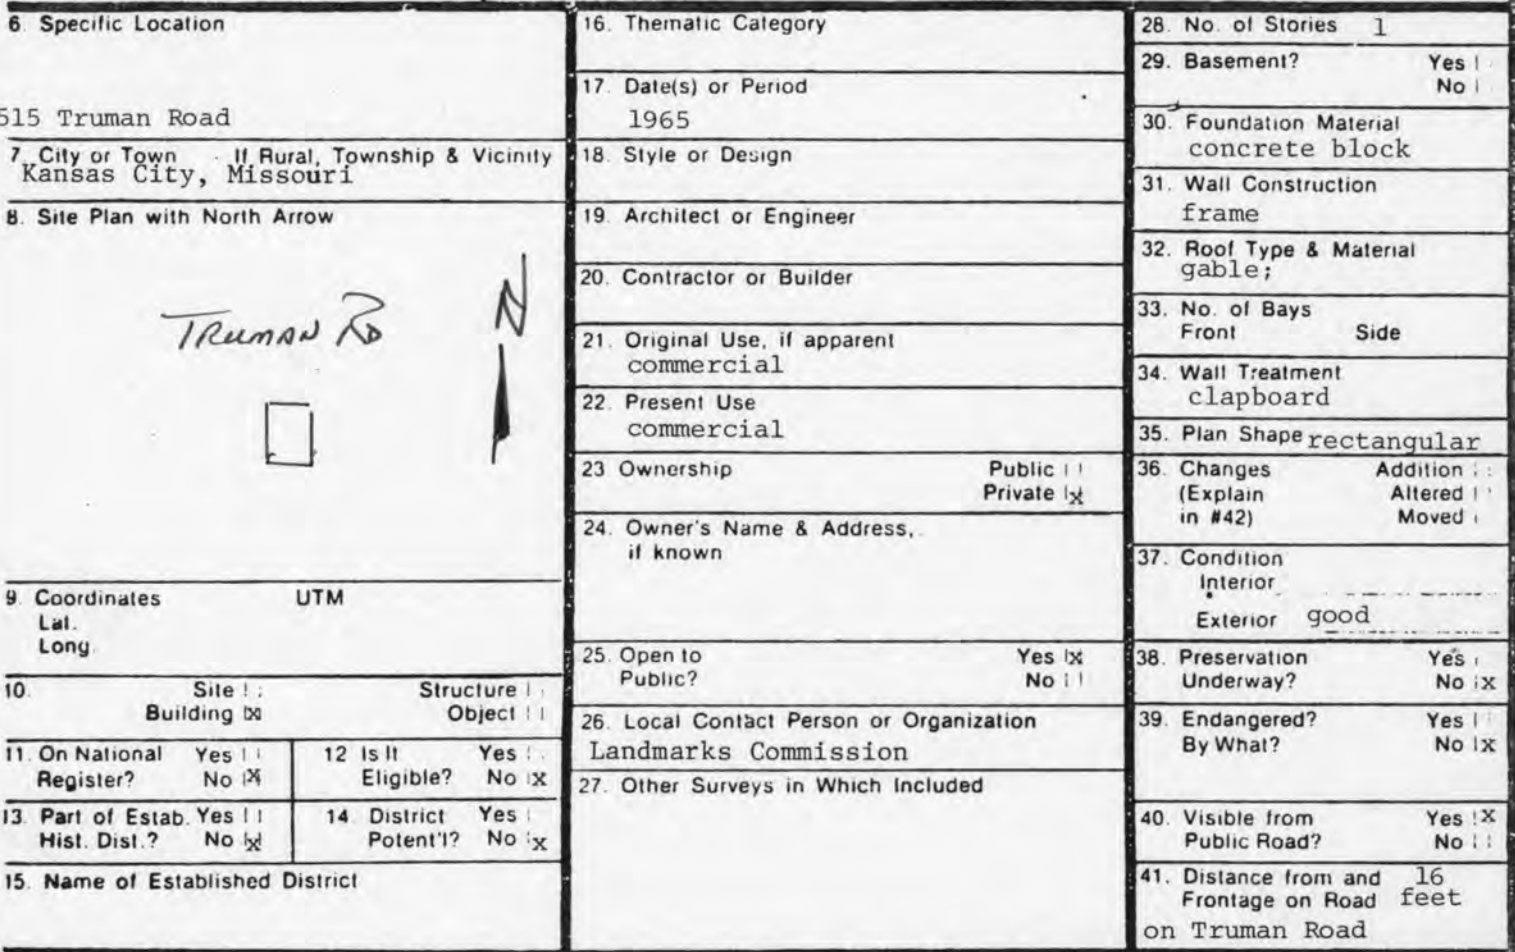 6. Specific Location
515 Truman Road
7. City or Town If Rural, Township & Vicinity
Kansas City, Missouri
8. Site Plan with North Arrow
TRUMAN RD
N
9. Coordinates UTM
Lat.
Long.
10. Site Structure
Building X Object
11. On National Yes
Register? No X
12 Is It Yes
Eligible? No X
13. Part of Estab. Yes
Hist. Dist.? No X
14. District Yes
Potent'l? No X
15. Name of Established District
16. Thematic Category
17. Date(s) or Period
1965
18. Style or Design
19. Architect or Engineer
20. Contractor or Builder
21. Original Use, if apparent
commercial
22. Present Use
commercial
23 Ownership Public
Private X
24. Owner's Name & Address,
if known
25. Open to Yes X
Public? No
26. Local Contact Person or Organization
Landmarks Commission
27. Other Surveys in Which Included
28. No. of Stories 1
29. Basement? Yes
No
30. Foundation Material
concrete block
31. Wall Construction
frame
32. Roof Type & Material
gable;
33. No. of Bays
Front Side
34. Wall Treatment
clapboard
35. Plan Shape rectangular
36. Changes Addition
(Explain Altered
in #42) Moved
37. Condition
Interior
Exterior good
38. Preservation Yes
Underway? No X
39. Endangered? Yes
By What? No X
40. Visible from Yes X
Public Road? No
41. Distance from and 16
Frontage on Road feet
on Truman Road